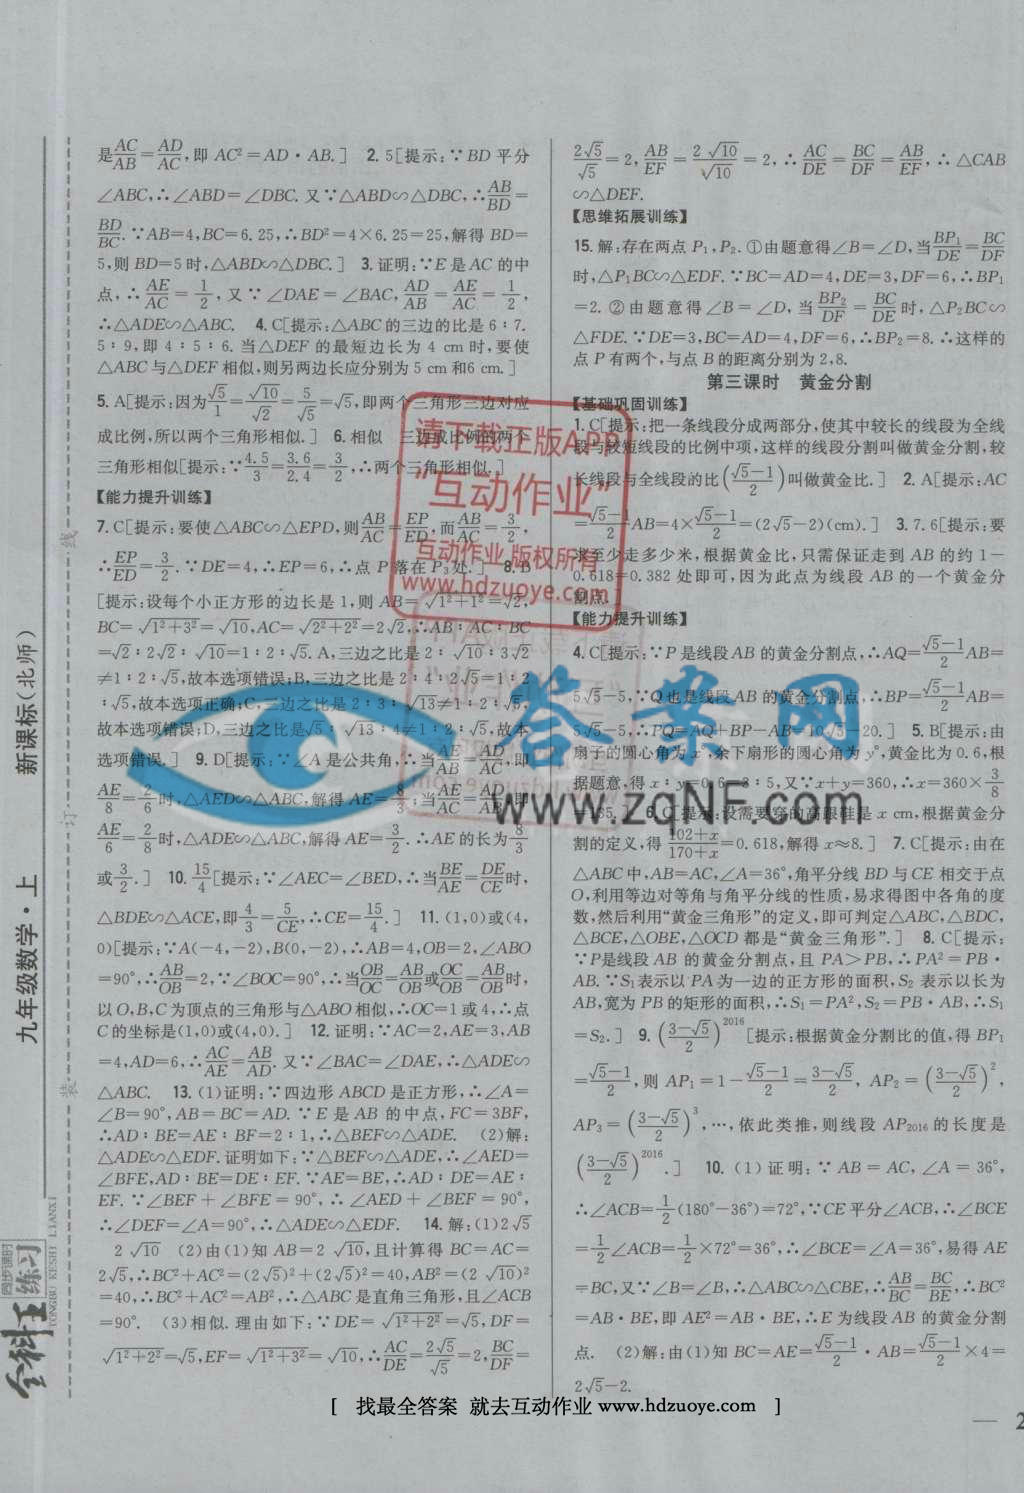 是AC/AB=AD/AC,即 AC²=AD·AB.] 2. 5[提示:∵BD 平分
∠ABC,∴∠ABD=∠DBC. 又∵△ABD∽△DBC,∴AB/BD=
BD/BC.∵AB=4,BC=6.25,∴BD²=4×6.25=25,解得 BD=
5,则 BD=5时,△ABD∽△DBC.] 3. 证明:∵E 是 AC 的中
点,∴AE/AC=1/2,又∵∠DAE=∠BAC,AD/AB=AE/AC=1/2,
∴△ADE∽△ABC. 4. C[提示:△ABC 的三边的比是 6∶7.
5∶9,即 4∶5∶6. 当△DEF 的最短边长为 4 cm时,要使
△ABC 与△DEF 相似,则另两边长应分别为 5 cm和6 cm.]
5. A[提示:因为√5/1=√10/√2=5/√5=√5,即两个三角形三边对应
成比例,所以两个三角形相似.] 6. 相似 三边成比例的两个
三角形相似[提示:∵4.5/3=3.6/2.4=3/2,∴两个三角形相似.]
【能力提升训练】
7. C[提示:要使△ABC∽△EPD,则AB/AC=EP/ED,而AB/AC=3/2,
∴EP/ED=3/2.∵DE=4,∴EP=6,∴点 P 落在 P₃ 处.] 8. B
[提示:设每个小正方形的边长是 1,则 AB=√1²+1²=√2,
BC=√1²+3²=√10,AC=√2²+2²=2√2,∴AB∶AC∶BC
=√2∶2√2∶√10=1∶2∶√5. A,三边之比是 2∶√10∶3√2
≠1∶2∶√5,故本选项错误;B,三边之比是 2∶4∶2√5=1∶2
∶√5,故本选项正确;C,三边之比是 2∶3∶√13≠1∶2∶√5,
故本选项错误;D,三边之比是√5∶√13∶4≠1∶2∶√5,故本
选项错误.] 9. D[提示:∵∠A 是公共角,∴当AE/AB=AD/AC,即
AE/8=2/6时,△AED∽△ABC,解得 AE=8/3;当AE/AC=AD/AB,即
AE/6=2/8时,△ADE∽△ABC,解得 AE=3/2. ∴AE 的长为8/3
或3/2.] 10. 15/4[提示:∵∠AEC=∠BED,∴当BE/AE=DE/CE时,
△BDE∽△ACE,即4/3=5/CE,∴CE=15/4.] 11. (1,0)或(4,
0)[提示:∵A(−4,−2),B(0,−2),∴AB=4,OB=2,∠ABO
=90°,∴AB/OB=2,∵∠BOC=90°,∴当OB/OC=AB/OB或OC/OB=AB/OB时,
以 O,B,C 为顶点的三角形与△ABO 相似,∴OC=1或 4,∴点
C 的坐标是(1,0)或(4,0).] 12. 证明:∵AC=2,AE=3,AB
=4,AD=6,∴AC/AE=AB/AD. 又∵∠BAC=∠DAE,∴△ADE∽
△ABC. 13. (1)证明:∵四边形 ABCD 是正方形,∴∠A=
∠B=90°,AB=BC=AD.∵E 是 AB 的中点,FC=3BF,
∴AD∶BE=AE∶BF=2∶1,∴△BEF∽△ADE. (2)解:
△ADE∽△EDF.证明如下:∵△BEF∽△ADE,∴∠AED=
∠BFE,AD∶BE=DE∶EF.∵AE=BE,∴AD∶DE=AE∶
EF.∵∠BEF+∠BFE=90°,∴∠AED+∠BEF=90°,
∴∠DEF=∠A=90°,∴△ADE∽△EDF. 14. 解:(1)2√5
2√10 (2)由(1)知 AB=2√10,且计算得 BC=AC=
2√5,∴BC²+AC²=(2√5)²+(2√5)²=40,AB²=(2√10)²
=40,∴BC²+AC²=AB²,∴△ABC 是直角三角形,且∠ACB
=90°. (3)相似.理由如下:∵DE=√1²+2²=√5,DF=
√1²+2²=√5,EF=√1²+3²=√10,∴AC/DE=2√5/√5=2,BC/DF=
2√5/√5=2,AB/EF=2√10/√10=2,∴AC/DE=BC/DF=AB/EF,∴△CAB
∽△DEF.
【思维拓展训练】
15. 解:存在两点 P₁,P₂. ①由题意得∠B=∠D,当BP₁/DE=BC/DF
时,△P₁BC∽△EDF.∵BC=AD=4,DE=3,DF=6,∴BP₁
=2. ②由题意得∠B=∠D,当BP₂/DF=BC/DE时,△P₂BC∽
△FDE.∵DE=3,BC=AD=4,DF=6,∴BP₂=8.∴这样的
点 P 有两个,与点 B 的距离分别为 2,8.
第三课时 黄金分割
【基础巩固训练】
1. C[提示:把一条线段分成两部分,使其中较长的线段为全线
段与较短线段的比例中项,这样的线段分割叫做黄金分割,较
长线段与全线段的比(√5−1/2)叫做黄金比.] 2. A[提示:AC
=√5−1/2AB=4×√5−1/2=(2√5−2)(cm).] 3. 7.6[提示:要
求至少走多少米,根据黄金比,只需保证走到 AB 的约 1−
0.618=0.382 处即可,因为此点为线段 AB 的一个黄金分
割点.]
【能力提升训练】
4. C[提示:∵P 是线段 AB 的黄金分割点,∴AQ=√5−1/2AB=
5√5−5,∵Q 也是线段 AB 的黄金分割点,∴BP=√5−1/2AB=
5√5−5,∴PQ=AQ+BP−AB=10√5−20.] 5. B[提示:由
扇子的圆心角为 x°,余下扇形的圆心角为 y°,黄金比为 0.6,根
据题意,得 x∶y=0.6=3∶5,又∵x+y=360,∴x=360×3/8
=135.] 6. C[提示:设需要穿的高跟鞋是 x cm,根据黄金分
割的定义,得102+x/170+x=0.618,解得 x≈8.] 7. C[提示:由在
△ABC 中,AB=AC,∠A=36°,角平分线 BD 与 CE 相交于点
O,利用等边对等角与角平分线的性质,易求得图中各角的度
数,然后利用“黄金三角形”的定义,即可判定△ABC,△BDC,
△BCE,△OBE,△OCD 都是“黄金三角形”.] 8. C[提示:
∵P是线段 AB 的黄金分割点,且 PA>PB,∴PA²=PB·
AB.∵S₁表示以 PA 为一边的正方形的面积,S₂ 表示以长为
AB,宽为 PB 的矩形的面积,∴S₁=PA²,S₂=PB·AB,∴S₁
=S₂.] 9. (3−√5/2)²⁰¹⁶[提示:根据黄金分割比的值,得 BP₁
=√5−1/2,则 AP₁=1−√5−1/2=3−√5/2, AP₂=(3−√5/2)²,
AP₃=(3−√5/2)³,…,依此类推,则线段 AP₂₀₁₆的长度是
(3−√5/2)²⁰¹⁶.] 10. (1)证明:∵AB=AC,∠A=36°,
∴∠ACB=1/2(180°−36°)=72°,∵CE平分∠ACB,∴∠BCE
=1/2∠ACB=1/2×72°=36°,∴∠BCE=∠A=36°,易得 AE
=BC,又∵∠B=∠B,∴△ABC∽△CBE,∴AB/BC=BC/BE,∴BC²
=AB·BE,即 AE²=AB·BE,∴E 为线段 AB 的黄金分割
点. (2)解:由(1)知 BC=AE=√5−1/2·AB=√5−1/2×4=
2√5−2.
新课标(北师)
九年级数学·上
线
订
装
全科王
同步课时
练习
TONGBU KESHI LIANXI
请下载正版APP
“互动作业”
互动作业,版权所有
www.hdzuoye.com
答案网
www.zqNF.com
[ 找最全答案 就去互动作业 www.hdzuoye.com ]
— 2